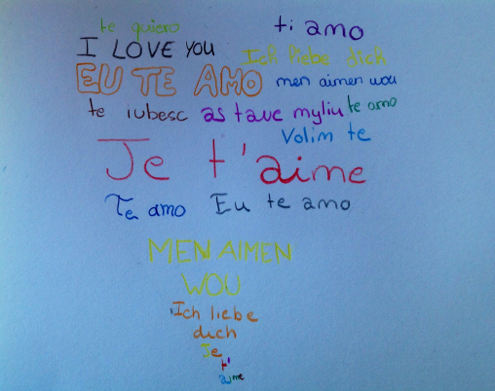 te quiero
ti amo
I LOVE YOU
Ich liebe dich
EU TE AMO
men aimen wou
te iubesc
as tave myliu
te amo
Volim te
Je t'aime
Te amo
Eu te amo
MEN AIMEN
WOU
Ich liebe
dich
Je
t'
aime